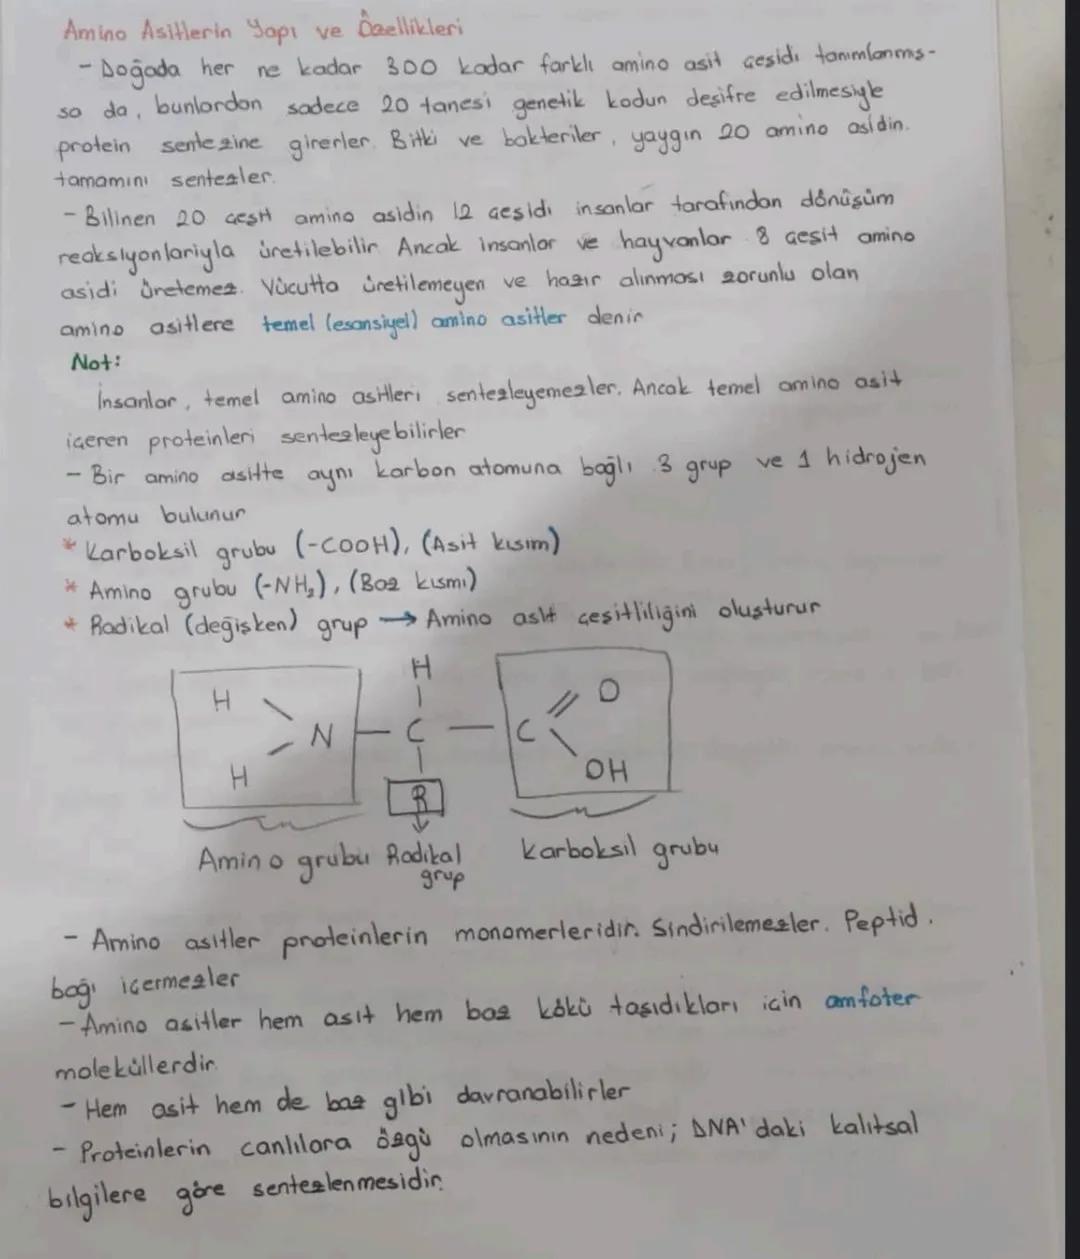 Amino Asitlerin Yapı ve Özellikleri
- Doğada her ne kadar 300 kadar farklı amino asit çeşidi tanımlanmış-
sa da, bunlardan sadece 20 tanesi genetik kodun deşifre edilmesiyle
protein sentezine girerler. Bitki ve bakteriler, yaygın 20 amino asidin.
tamamını sentezler.
- Bilinen 20 çeşit amino asidin 12 çeşidi insanlar tarafından dönüşüm
reaksiyonlarıyla üretilebilir. Ancak insanlar ve hayvanlar 8 çeşit amino
asidi üretemez. Vücutta üretilemeyen ve hazır alınması zorunlu olan
amino asitlere temel (esansiyel) amino asitler denir
Not:
İnsanlar, temel amino asitleri sentezleyemezler. Ancak temel amino asit
içeren proteinleri sentezleyebilirler
- Bir amino asitte aynı karbon atomuna bağlı 3 grup ve 1 hidrojen
atomu bulunur
* Karboksil grubu (-COOH), (Asit kısım)
* Amino grubu (-NH₂), (Baz kısmı)
* Radikal (değişken) grup → Amino asit çeşitliliğini oluşturur
H
H O
N - C - C
H OH
R
Amino grubu Radikal Karboksil grubu
grup
- Amino asitler proteinlerin monomerleridir. Sindirilemezler. Peptid.
bağı içermezler
- Amino asitler hem asit hem baz kökü taşıdıkları için amfoter
moleküllerdir.
- Hem asit hem de baz gibi davranabilirler
- Proteinlerin canlılara özgü olmasının nedeni; DNA'daki kalıtsal
bilgilere göre sentezlenmesidir.